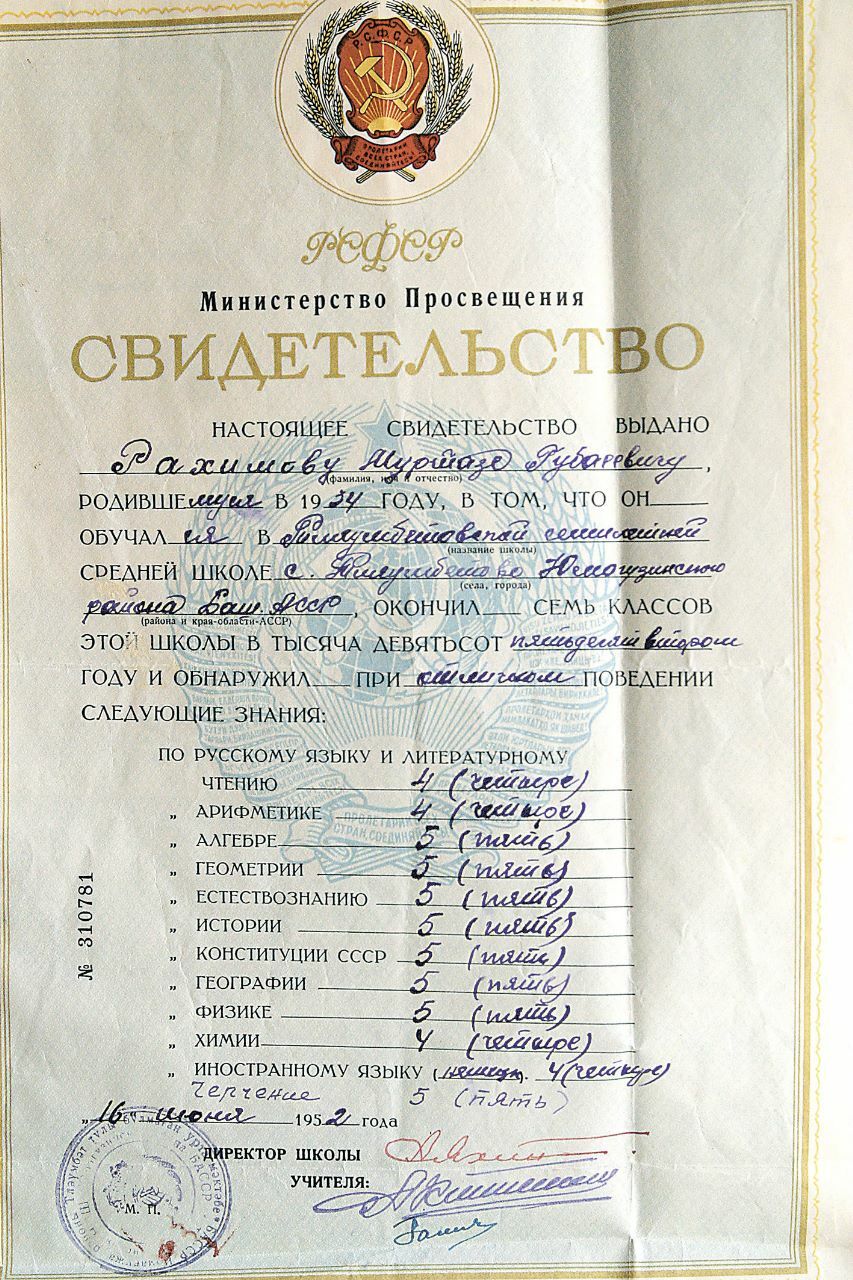 Р.С.Ф.С.Р.
ПРОЛЕТАРИИ
ВСЕХ СТРАН,
СОЕДИНЯЙТЕСЬ!
РСФСР
Министерство Просвещения
СВИДЕТЕЛЬСТВО
НАСТОЯЩЕЕ СВИДЕТЕЛЬСТВО ВЫДАНО
Рахимову Муртазе Губаевичу,
(фамилия, имя и отчество)
РОДИВШЕмуся В 1934 ГОДУ, В ТОМ, ЧТО ОН
ОБУЧАЛся В Тляумбетовской семилетней
(название школы)
СРЕДНЕЙ ШКОЛЕ с. Тляумбетово Юмагузинского
(села, города)
района Баш. АССР, ОКОНЧИЛ СЕМЬ КЛАССОВ
(района и края-области-АССР)
ЭТОЙ ШКОЛЫ В ТЫСЯЧА ДЕВЯТЬСОТ пятьдесят втором
ГОДУ И ОБНАРУЖИЛ ПРИ отличном ПОВЕДЕНИИ
СЛЕДУЮЩИЕ ЗНАНИЯ:
ПО РУССКОМУ ЯЗЫКУ И ЛИТЕРАТУРНОМУ
ЧТЕНИЮ 4 (четыре)
„ АРИФМЕТИКЕ 4 (четыре)
„ АЛГЕБРЕ 5 (пять)
„ ГЕОМЕТРИИ 5 (пять)
„ ЕСТЕСТВОЗНАНИЮ 5 (пять)
„ ИСТОРИИ 5 (пять)
„ КОНСТИТУЦИИ СССР 5 (пять)
„ ГЕОГРАФИИ 5 (пять)
„ ФИЗИКЕ 5 (пять)
„ ХИМИИ 4 (четыре)
„ ИНОСТРАННОМУ ЯЗЫКУ (немецк). 4 (четыре)
Черчение 5 (пять)
№ 310781
„16" июня 1952 года
ДИРЕКТОР ШКОЛЫ
УЧИТЕЛЯ:
М. П.